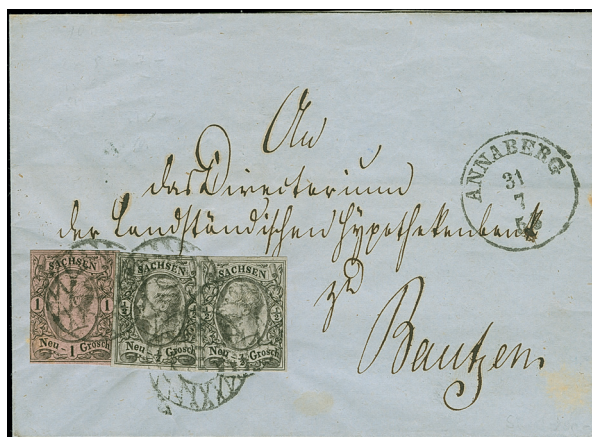 An
das Directorium
der Landständischen Hypothekenbank
zu
Bautzen
ANNABERG
31
7
SACHSEN
1 1
Neu-1 Grosch
SACHSEN
½ ½
Neu-½ Grosch
SACHSEN
½ ½
Neu-½ Grosch